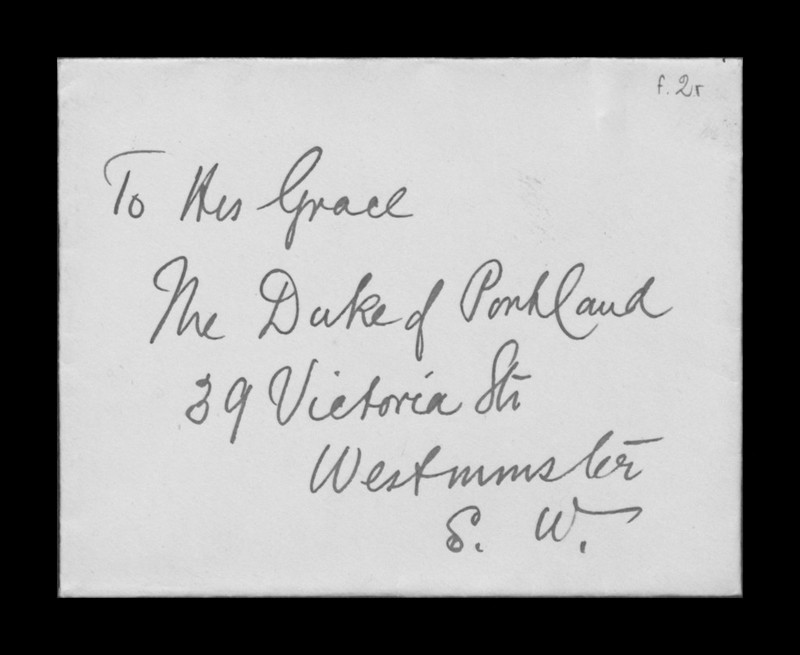 f. 2r
To His Grace
The Duke of Portland
39 Victoria Str
Westminster
S. W.